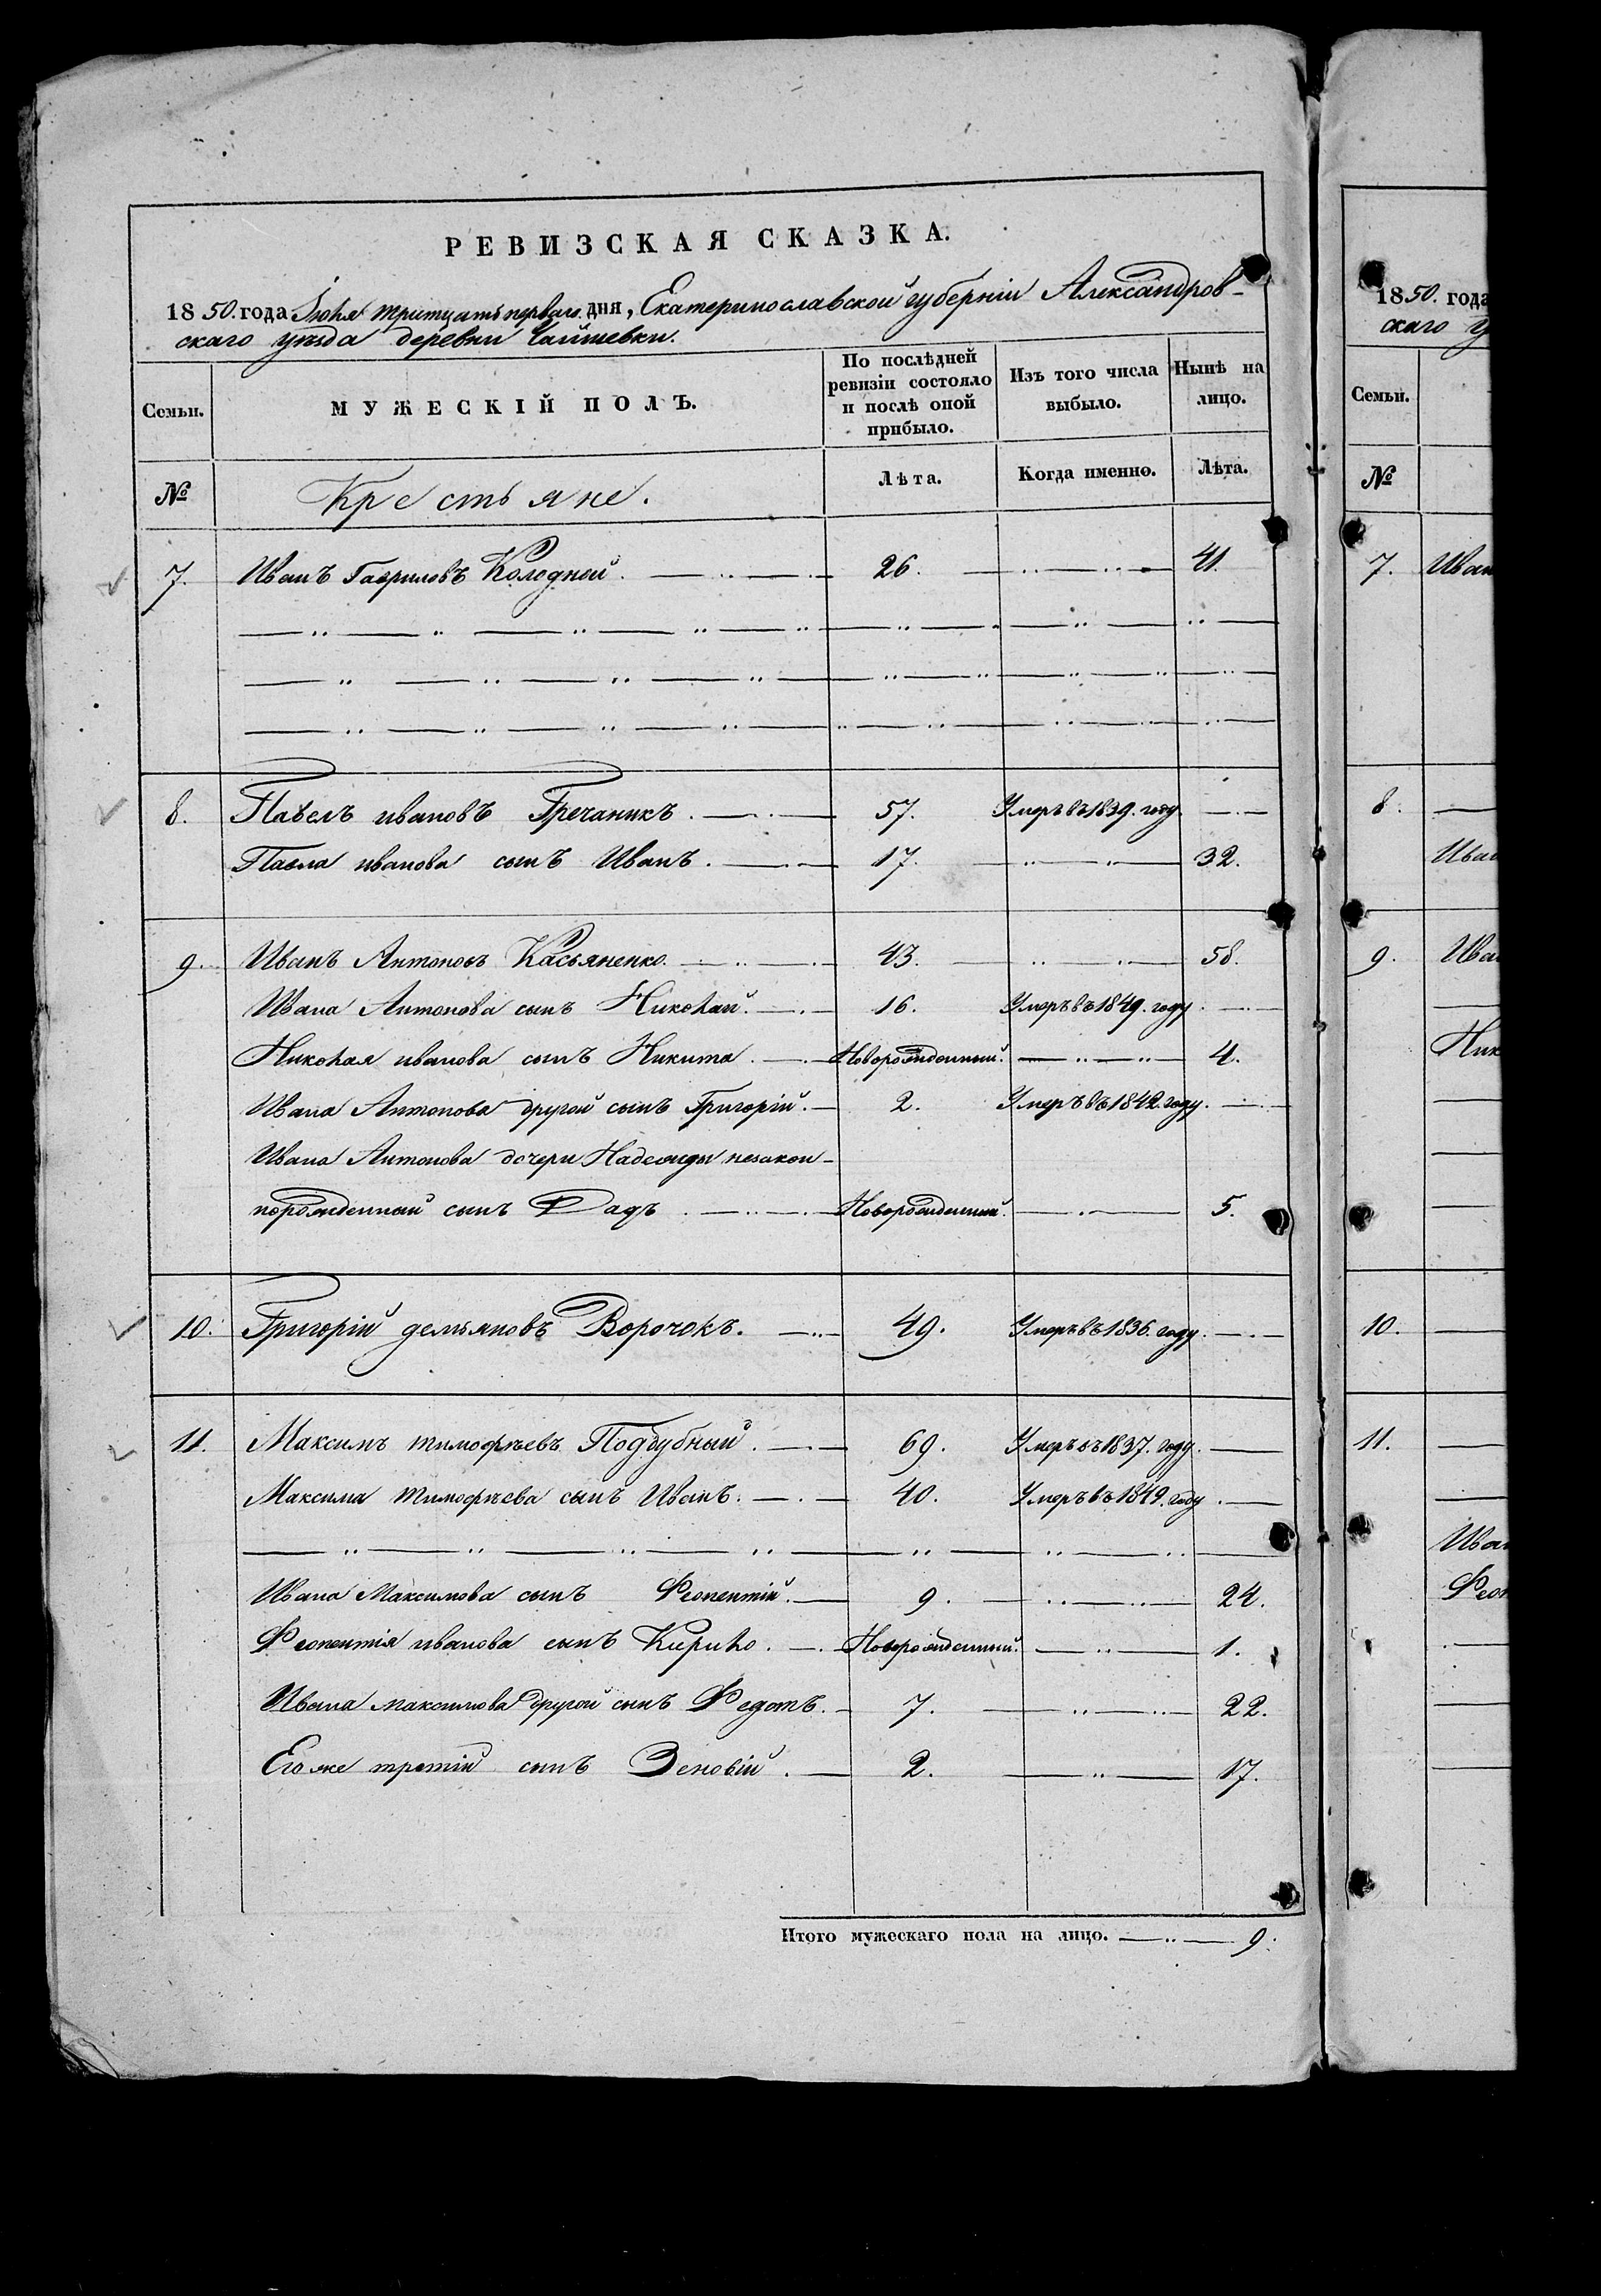 РЕВИЗСКАЯ СКАЗКА.
1850. года Іюля тритцать перваго дня, Екатеринославской губерніи Александров-
скаго уѣзда деревни
Семьи.
МУЖЕСКІЙ ПОЛЪ.
По послѣдней ревизіи состояло и послѣ оной прибыло.
Изъ того числа выбыло.
Нынѣ на лицо.
№
Крестьяне.
Лѣта.
Когда именно.
Лѣта.
7. Иванъ Гавриловъ Колодней. 26. 41.
8. Павелъ ивановъ Гречаникъ. 57. Умеръ въ 1839. году.
Павла иванова сынъ Иванъ. 17. 32.
9. Иванъ Антоновъ Касьяненко. 43. 58.
Ивана Антонова сынъ Николай. 16. Умеръ въ 1849. году.
Николая иванова сынъ Никита. Новорожденный. 4.
Ивана Антонова другой сынъ Григорій. 2. Умеръ въ 1842. году.
Ивана Антонова дочери Надежды незакон-
норожденный сынъ Новорожденный. 5.
10. Григорій демьяновъ Ворочокъ. 49. Умеръ въ 1836. году.
11. Максимъ тимофѣевъ Поддубный. 69. Умеръ въ 1837. году.
Максима тимофѣева сынъ Иванъ. 40. Умеръ въ 1849. году.
Ивана Максимова сынъ Феопентій. 9. 24.
Феопентія иванова сынъ Кирило. Новорожденный. 1.
Ивана максимова другой сынъ Федотъ. 7. 22.
Его же третій сынъ Зеновій. 2. 17.
Итого мужескаго пола на лицо. 9.
1850. года
скаго у
Семьи.
№
7. Иван
8.
Иван
9. Иван
Ник
10.
11.
Иван
Феоп